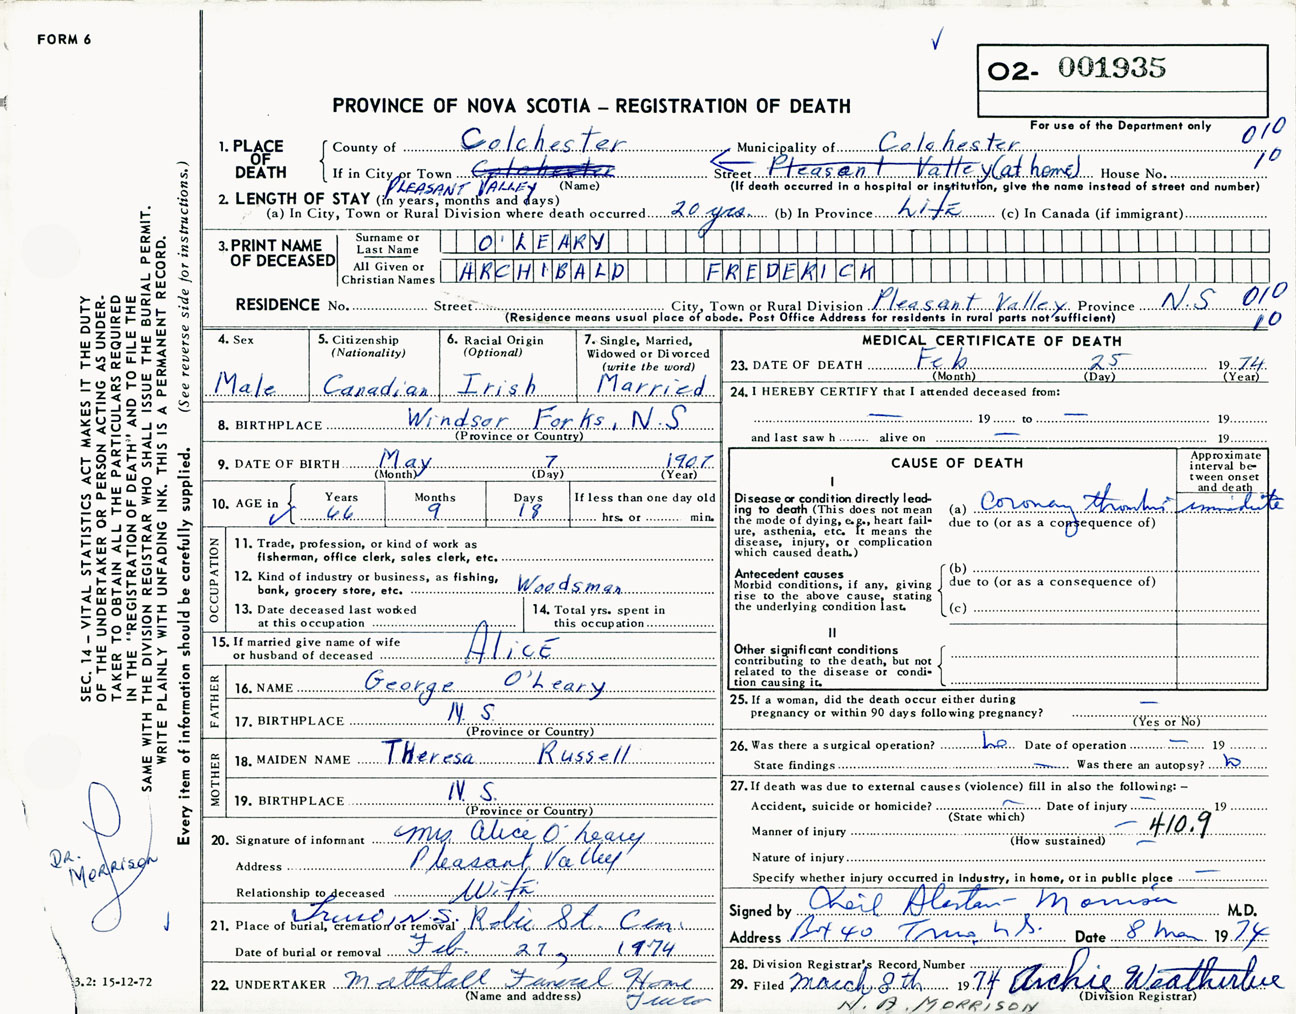 FORM 6
O2- 001935
PROVINCE OF NOVA SCOTIA – REGISTRATION OF DEATH
For use of the Department only
010
10
1. PLACE OF DEATH
County of Colchester Municipality of Colchester
If in City or Town Colchester Street Pleasant Valley (at home) House No.
PLEASANT VALLEY (Name) (If death occurred in a hospital or institution, give the name instead of street and number)
2. LENGTH OF STAY (in years, months and days)
(a) In City, Town or Rural Division where death occurred 20 yrs. (b) In Province Life (c) In Canada (if immigrant)
3. PRINT NAME OF DECEASED
Surname or Last Name O'LEARY
All Given or Christian Names ARCHIBALD FREDERICK
RESIDENCE No. Street City, Town or Rural Division Pleasant Valley Province N.S 010
(Residence means usual place of abode. Post Office Address for residents in rural parts not sufficient) 10
4. Sex Male
5. Citizenship (Nationality) Canadian
6. Racial Origin (Optional) Irish
7. Single, Married, Widowed or Divorced (write the word) Married
8. BIRTHPLACE Windsor Forks, N.S
(Province or Country)
9. DATE OF BIRTH May 7 1907
(Month) (Day) (Year)
10. AGE in Years 66 Months 9 Days 18 If less than one day old hrs. or min.
OCCUPATION
11. Trade, profession, or kind of work as fisherman, office clerk, sales clerk, etc.
12. Kind of industry or business, as fishing, bank, grocery store, etc. Woodsman
13. Date deceased last worked at this occupation
14. Total yrs. spent in this occupation
15. If married give name of wife or husband of deceased Alice
FATHER
16. NAME George O'Leary
17. BIRTHPLACE N.S.
(Province or Country)
MOTHER
18. MAIDEN NAME Theresa Russell
19. BIRTHPLACE N.S.
(Province or Country)
20. Signature of informant Mrs. Alice O'Leary
Address Pleasant Valley
Relationship to deceased Wife
21. Place of burial, cremation or removal Truro, N.S. Robie St. Cem.
Date of burial or removal Feb. 27, 1974
22. UNDERTAKER Mattatall Funeral Home
(Name and address) Truro
MEDICAL CERTIFICATE OF DEATH
23. DATE OF DEATH Feb 25 1974
(Month) (Day) (Year)
24. I HEREBY CERTIFY that I attended deceased from:
— 19 to — 19
and last saw h alive on — 19
CAUSE OF DEATH
Approximate interval between onset and death
I
Disease or condition directly leading to death (This does not mean the mode of dying, e.g., heart failure, asthenia, etc. It means the disease, injury, or complication which caused death.)
(a) Coronary thrombosis immediate
due to (or as a consequence of)
Antecedent causes
Morbid conditions, if any, giving rise to the above cause, stating the underlying condition last.
(b)
due to (or as a consequence of)
(c)
II
Other significant conditions contributing to the death, but not related to the disease or condition causing it.
25. If a woman, did the death occur either during pregnancy or within 90 days following pregnancy? —
(Yes or No)
26. Was there a surgical operation? no Date of operation — 19
State findings — Was there an autopsy? no
27. If death was due to external causes (violence) fill in also the following: –
Accident, suicide or homicide? — Date of injury — 19
(State which)
Manner of injury — 410.9
(How sustained)
Nature of injury
Specify whether injury occurred in industry, in home, or in public place —
Signed by Neil Alastair Morrison M.D.
Address Box 40 Truro, N.S. Date 8 Mar 1974
28. Division Registrar's Record Number
29. Filed March 8th 1974 Archie Weatherbee
(Division Registrar)
N. A. MORRISON
SEC. 14 – VITAL STATISTICS ACT MAKES IT THE DUTY
OF THE UNDERTAKER OR PERSON ACTING AS UNDER-
TAKER TO OBTAIN ALL THE PARTICULARS REQUIRED
IN THE "REGISTRATION OF DEATH" AND TO FILE THE
SAME WITH THE DIVISION REGISTRAR WHO SHALL ISSUE THE BURIAL PERMIT.
WRITE PLAINLY WITH UNFADING INK. THIS IS A PERMANENT RECORD.
Every item of information should be carefully supplied. (See reverse side for instructions.)
DR. MORRISON
3.2: 15-12-72